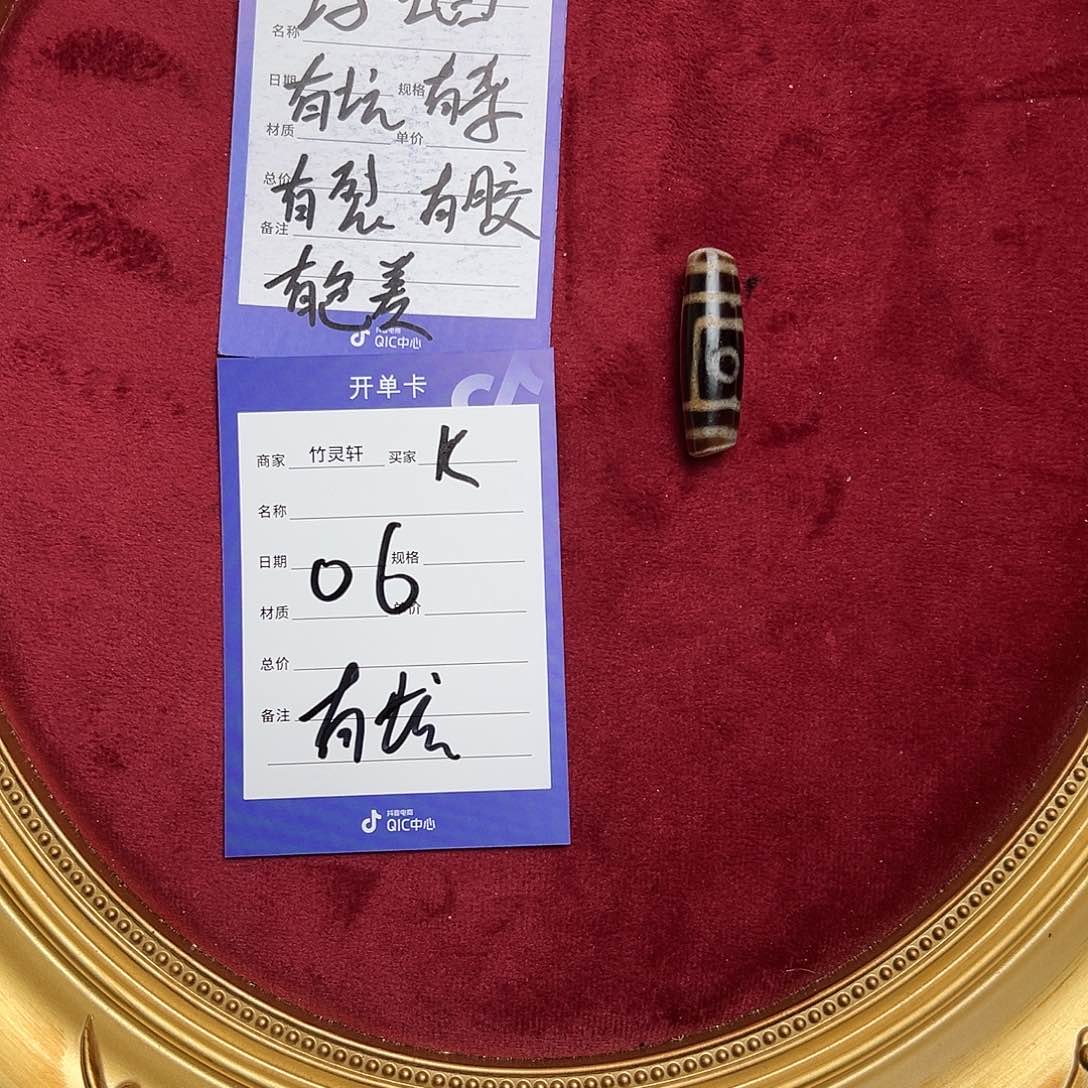 名称
日期 规格
有坑 有杂
材质 单价
总价
有裂 有胶
备注
有色差
抖音电商
QIC中心
开单卡
商家 竹灵轩 买家 K
名称
日期 06 规格
材质 单价
总价
备注 有坑
抖音电商
QIC中心